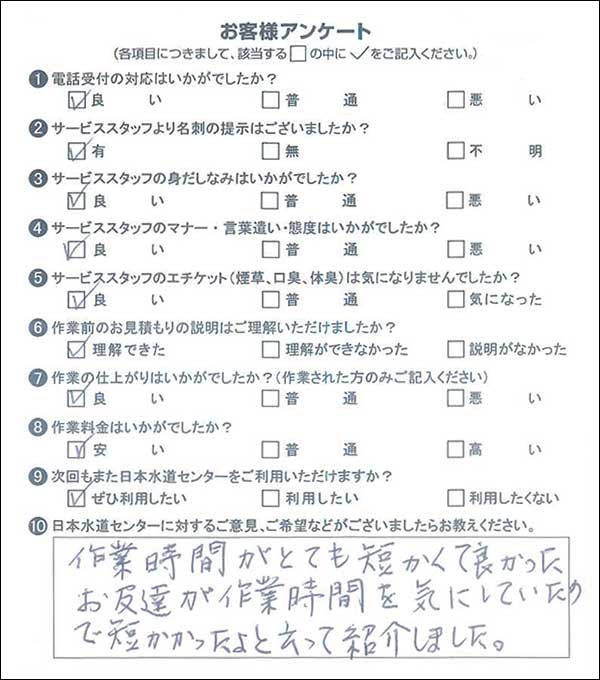 お客様アンケート
(各項目につきまして、該当する□の中に✓をご記入ください。)
❶電話受付の対応はいかがでしたか?
☑良い □普通 □悪い
❷サービススタッフより名刺の提示はございましたか?
☑有 □無 □不明
❸サービススタッフの身だしなみはいかがでしたか?
☑良い □普通 □悪い
❹サービススタッフのマナー・言葉遣い・態度はいかがでしたか?
☑良い □普通 □悪い
❺サービススタッフのエチケット(煙草、口臭、体臭)は気になりませんでしたか?
☑良い □普通 □気になった
❻作業前のお見積もりの説明はご理解いただけましたか?
☑理解できた □理解ができなかった □説明がなかった
❼作業の仕上がりはいかがでしたか?(作業された方のみご記入ください)
☑良い □普通 □悪い
❽作業料金はいかがでしたか?
☑安い □普通 □高い
❾次回もまた日本水道センターをご利用いただけますか?
☑ぜひ利用したい □利用したい □利用したくない
❿日本水道センターに対するご意見、ご希望などがございましたらお教えください。
作業時間がとても短かくて良かった
お友達が作業時間を気にしていたの
で短かかったよと云って紹介しました。